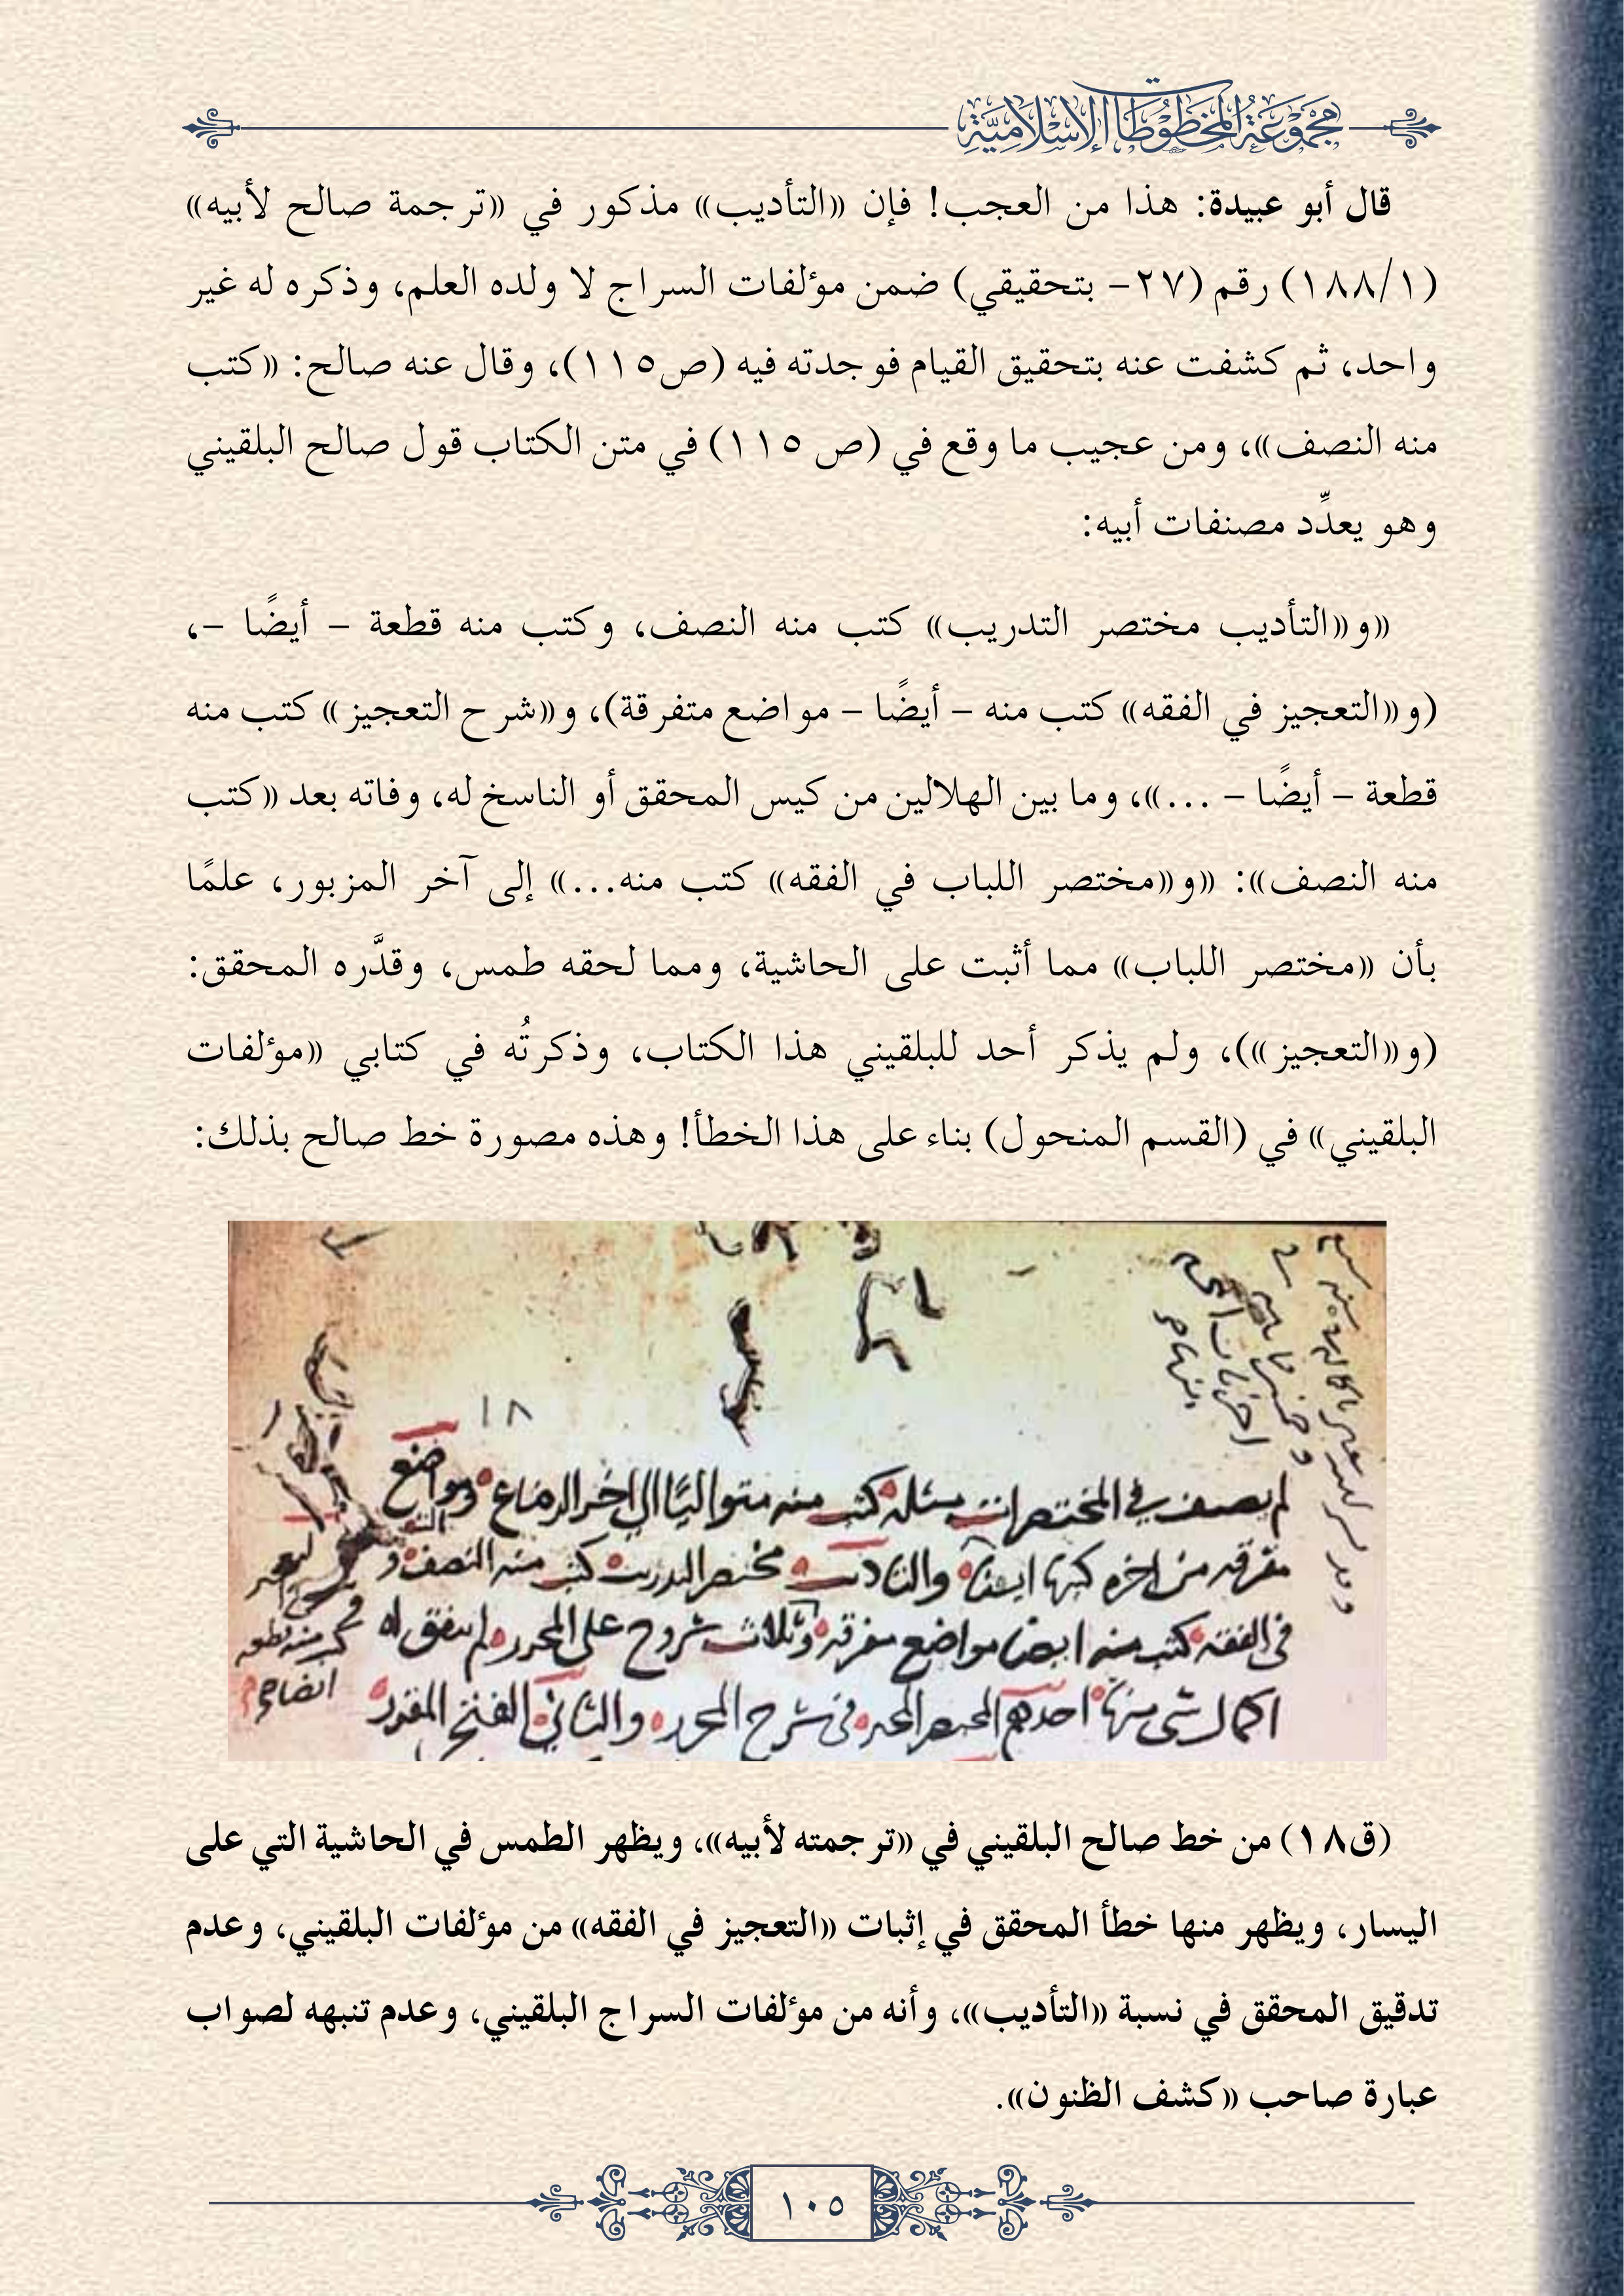 مجموعة المخطوطات الإسلامية
قال أبو عبيدة: هذا من العجب! فإن «التأديب» مذكور في «ترجمة صالح لأبيه»
(١/١٨٨) رقم (٢٧- بتحقيقي) ضمن مؤلفات السراج لا ولده العلم، وذكره له غير
واحد، ثم كشفت عنه بتحقيق القيام فوجدته فيه (ص١١٥)، وقال عنه صالح: «كتب
منه النصف»، ومن عجيب ما وقع في (ص ١١٥) في متن الكتاب قول صالح البلقيني
وهو يعدِّد مصنفات أبيه:
«و«التأديب مختصر التدريب» كتب منه النصف، وكتب منه قطعة – أيضًا –،
(و«التعجيز في الفقه» كتب منه – أيضًا – مواضع متفرقة)، و«شرح التعجيز» كتب منه
قطعة – أيضًا – ...»، وما بين الهلالين من كيس المحقق أو الناسخ له، وفاته بعد «كتب
منه النصف»: «و«مختصر اللباب في الفقه» كتب منه...» إلى آخر المزبور، علمًا
بأن «مختصر اللباب» مما أثبت على الحاشية، ومما لحقه طمس، وقدَّره المحقق:
(و«التعجيز»)، ولم يذكر أحد للبلقيني هذا الكتاب، وذكرتُه في كتابي «مؤلفات
البلقيني» في (القسم المنحول) بناء على هذا الخطأ! وهذه مصورة خط صالح بذلك:
١٨
لم يصنف في المختصرات مثله كتب منه متواليًا الى اخر الرضاع ومواضع
متفرقه من اخره كتبها ايضًا والتاديب مختصر التدريب كتب منه النصف و
في الفقه كتب منه ايضا مواضع متفرقه وثلاث شروح على المحرر لم يتفق له
اكمال شي منها احدهم في شرح المحرر والثاني الفتح المقدر
(ق١٨) من خط صالح البلقيني في «ترجمته لأبيه»، ويظهر الطمس في الحاشية التي على
اليسار، ويظهر منها خطأ المحقق في إثبات «التعجيز في الفقه» من مؤلفات البلقيني، وعدم
تدقيق المحقق في نسبة «التأديب»، وأنه من مؤلفات السراج البلقيني، وعدم تنبهه لصواب
عبارة صاحب «كشف الظنون».
١٠٥